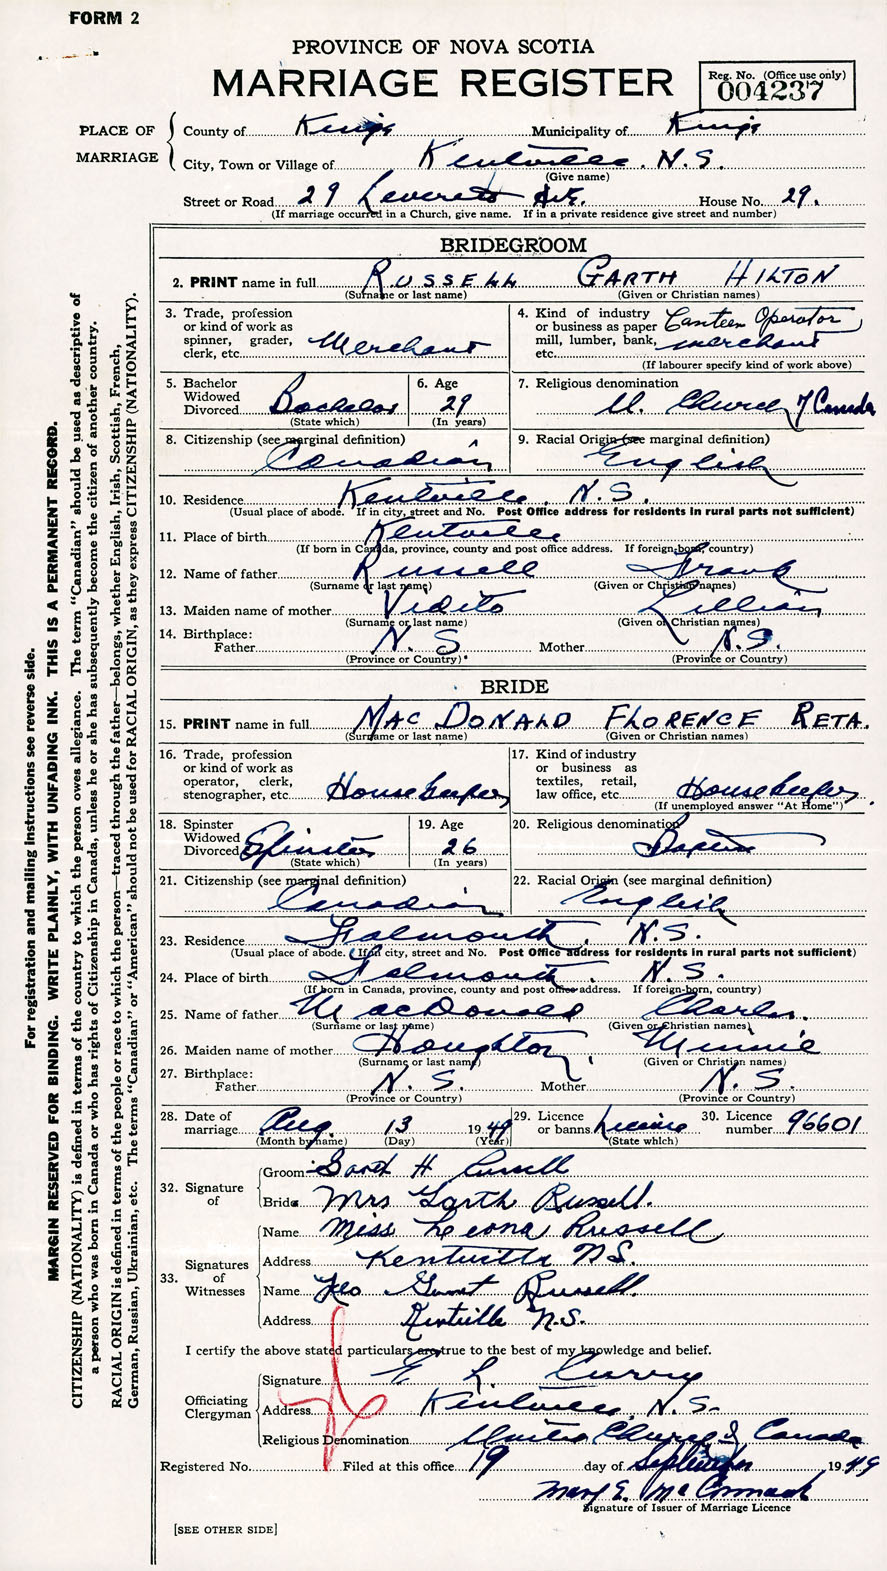 FORM 2
PROVINCE OF NOVA SCOTIA
MARRIAGE REGISTER
Reg. No. (Office use only)
004237
PLACE OF MARRIAGE
County of Kings Municipality of Kings
City, Town or Village of Kentville, N.S.
(Give name)
Street or Road 29 Leverett Ave. House No. 29.
(If marriage occurred in a Church, give name. If in a private residence give street and number)
BRIDEGROOM
2. PRINT name in full RUSSELL GARTH HILTON
(Surname or last name) (Given or Christian names)
3. Trade, profession or kind of work as spinner, grader, clerk, etc. Merchant
4. Kind of industry or business as paper mill, lumber, bank, etc. Canteen Operator merchant
(If labourer specify kind of work above)
5. Bachelor Widowed Divorced Bachelor
(State which)
6. Age 29
(In years)
7. Religious denomination U. Church of Canada
8. Citizenship (see marginal definition) Canadian
9. Racial Origin (see marginal definition) English
10. Residence Kentville, N.S.
(Usual place of abode. If in city, street and No. Post Office address for residents in rural parts not sufficient)
11. Place of birth Kentville
(If born in Canada, province, county and post office address. If foreign-born, country)
12. Name of father Russell Frank
(Surname or last name) (Given or Christian names)
13. Maiden name of mother Vidito Lillian
(Surname or last name) (Given or Christian names)
14. Birthplace:
Father N.S. Mother N.S.
(Province or Country) (Province or Country)
BRIDE
15. PRINT name in full MAC DONALD FLORENCE RETA.
(Surname or last name) (Given or Christian names)
16. Trade, profession or kind of work as operator, clerk, stenographer, etc. Housekeeper
17. Kind of industry or business as textiles, retail, law office, etc. Housekeeper
(If unemployed answer "At Home")
18. Spinster Widowed Divorced Spinster
(State which)
19. Age 26
(In years)
20. Religious denomination Baptist
21. Citizenship (see marginal definition) Canadian
22. Racial Origin (see marginal definition) English
23. Residence Falmouth, N.S.
(Usual place of abode. If in city, street and No. Post Office address for residents in rural parts not sufficient)
24. Place of birth Falmouth, N.S.
(If born in Canada, province, county and post office address. If foreign-born, country)
25. Name of father MacDonald Charles.
(Surname or last name) (Given or Christian names)
26. Maiden name of mother Houghton, Minnie
(Surname or last name) (Given or Christian names)
27. Birthplace:
Father N.S. Mother N.S.
(Province or Country) (Province or Country)
28. Date of marriage Aug. 13 1949
(Month by name) (Day) (Year)
29. Licence or banns License
(State which)
30. Licence number 96601
32. Signature of
Groom Garth H Russell
Bride Mrs Garth Russell.
33. Signatures of Witnesses
Name Miss Leona Russell
Address Kentville N.S.
Name Geo Russell.
Address Kentville N.S.
I certify the above stated particulars are true to the best of my knowledge and belief.
Officiating Clergyman
Signature E L Curry
Address Kentville, N.S.
Religious Denomination United Church of Canada
Registered No. Filed at this office 19 day of September 1949
Mary E. MacCormack
Signature of Issuer of Marriage Licence
[SEE OTHER SIDE]
For registration and mailing instructions see reverse side.
MARGIN RESERVED FOR BINDING. WRITE PLAINLY, WITH UNFADING INK. THIS IS A PERMANENT RECORD.
CITIZENSHIP (NATIONALITY) is defined in terms of the country to which the person owes allegiance. The term "Canadian" should be used as descriptive of
a person who was born in Canada or who has rights of Citizenship in Canada, unless he or she has subsequently become the citizen of another country.
RACIAL ORIGIN is defined in terms of the people or race to which the person—traced through the father—belongs, whether English, Irish, Scottish, French,
German, Russian, Ukrainian, etc. The terms "Canadian" or "American" should not be used for RACIAL ORIGIN, as they express CITIZENSHIP (NATIONALITY).